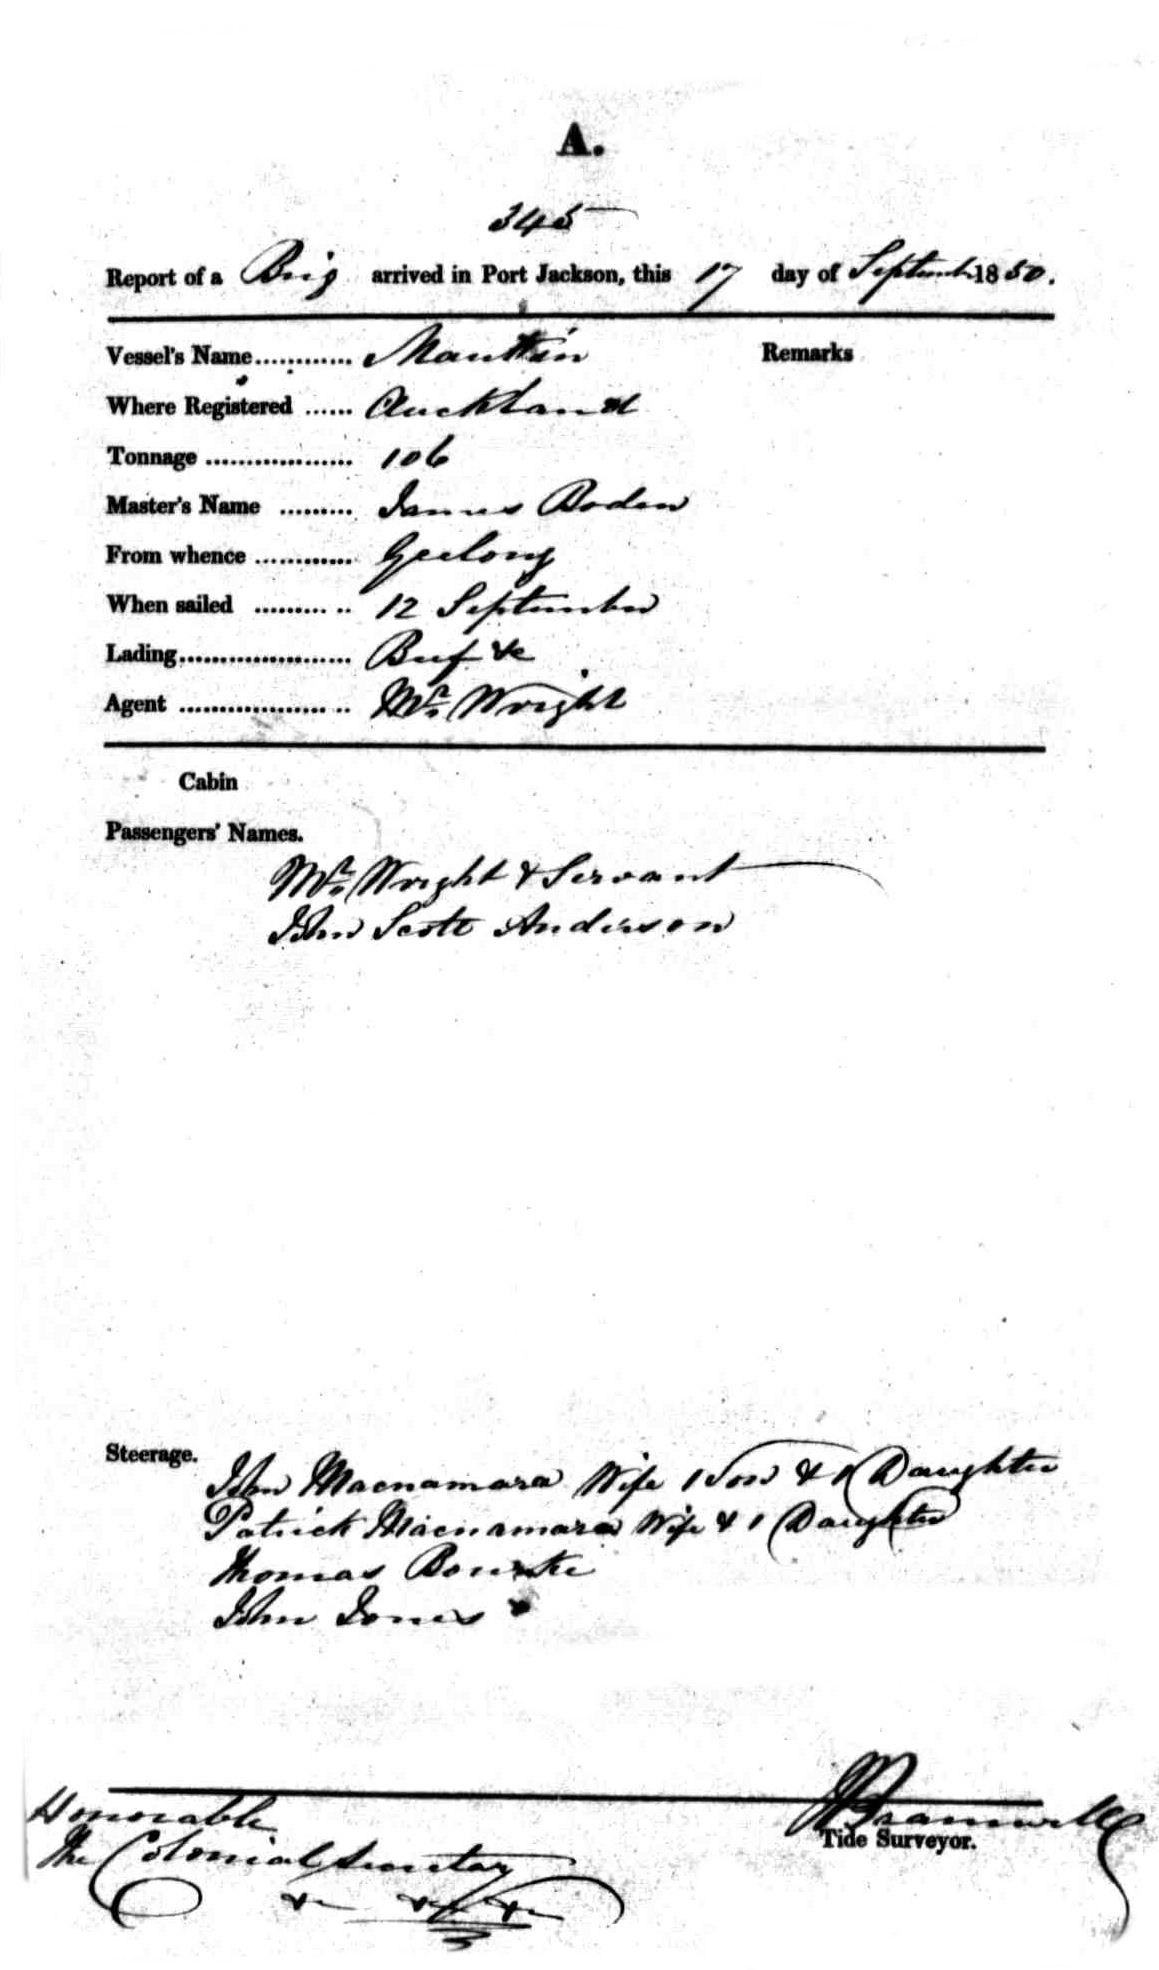 A.
345
Report of a Brig arrived in Port Jackson, this 17 day of September 1850.
Vessel's Name............ Remarks
Where Registered ...... Auckland
Tonnage .................. 106
Master's Name ......... James Boden
From whence ............ Geelong
When sailed ......... .. 12 September
Lading..................... Beef &c
Agent .................. .. Mr. Wright
Cabin
Passengers' Names.
Mr. Wright & Servant
John Scott Anderson
Steerage.
John Macnamara Wife 1 Son & 1 Daughter
Patrick Macnamara Wife & 1 Daughter
Thomas Bourke
John Jones
Honorable
The Colonial Secretary
&c &c &c
Tide Surveyor.